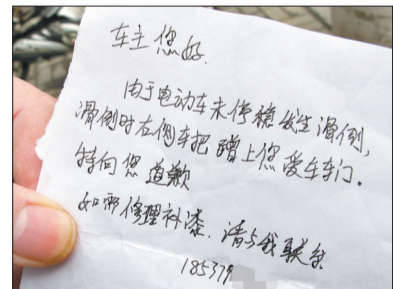 车主您好.
由于电动车未停稳发生滑倒,
滑倒时右侧车把蹭上您爱车车门.
特向您道歉
如需修理补漆.请与我联系
185379